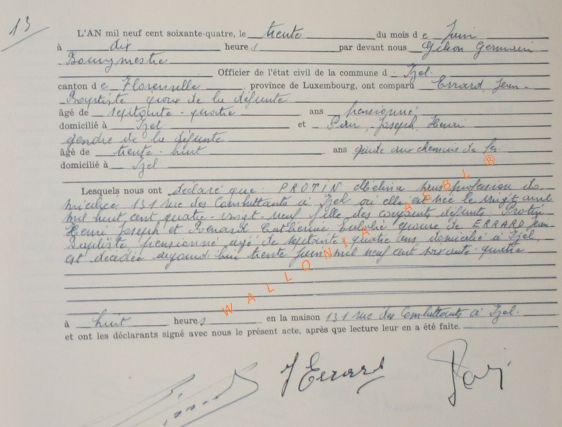 13
L'AN mil neuf cent soixante-quatre, le trente du mois de Juin
à dix heures par devant nous Gilson Germain
Bourgmestre
Officier de l'état civil de la commune d Izel
canton de Florenville, province de Luxembourg, ont comparu Errard, Jean-
Baptiste époux de la défunte
âgé de septante-quatre ans pensionné
domicilié à Izel et Joseph, Henri
gendre de la défunte
âgé de trente-huit ans garde aux chemins de fer
domicilié à Izel
Lesquels nous ont déclaré que: PROTIN sans profession do-
miciliée 131 rue des Combattants à Izel où elle est née le vingt
mil huit cent quatre-vingt neuf fille des conjoints défunts Protin
Henri Joseph et Catherine épouse de ERRARD Jean
Baptiste pensionné âgé de septante quatre ans domicilié à Izel
est décédée aujourd'hui trente Juin mil neuf cent soixante-quatre
à huit heures en la maison 131 rue des Combattants à Izel.
et ont les déclarants signé avec nous le présent acte, après que lecture leur en a été faite.
J Errard
WALLONIA ASBL ®